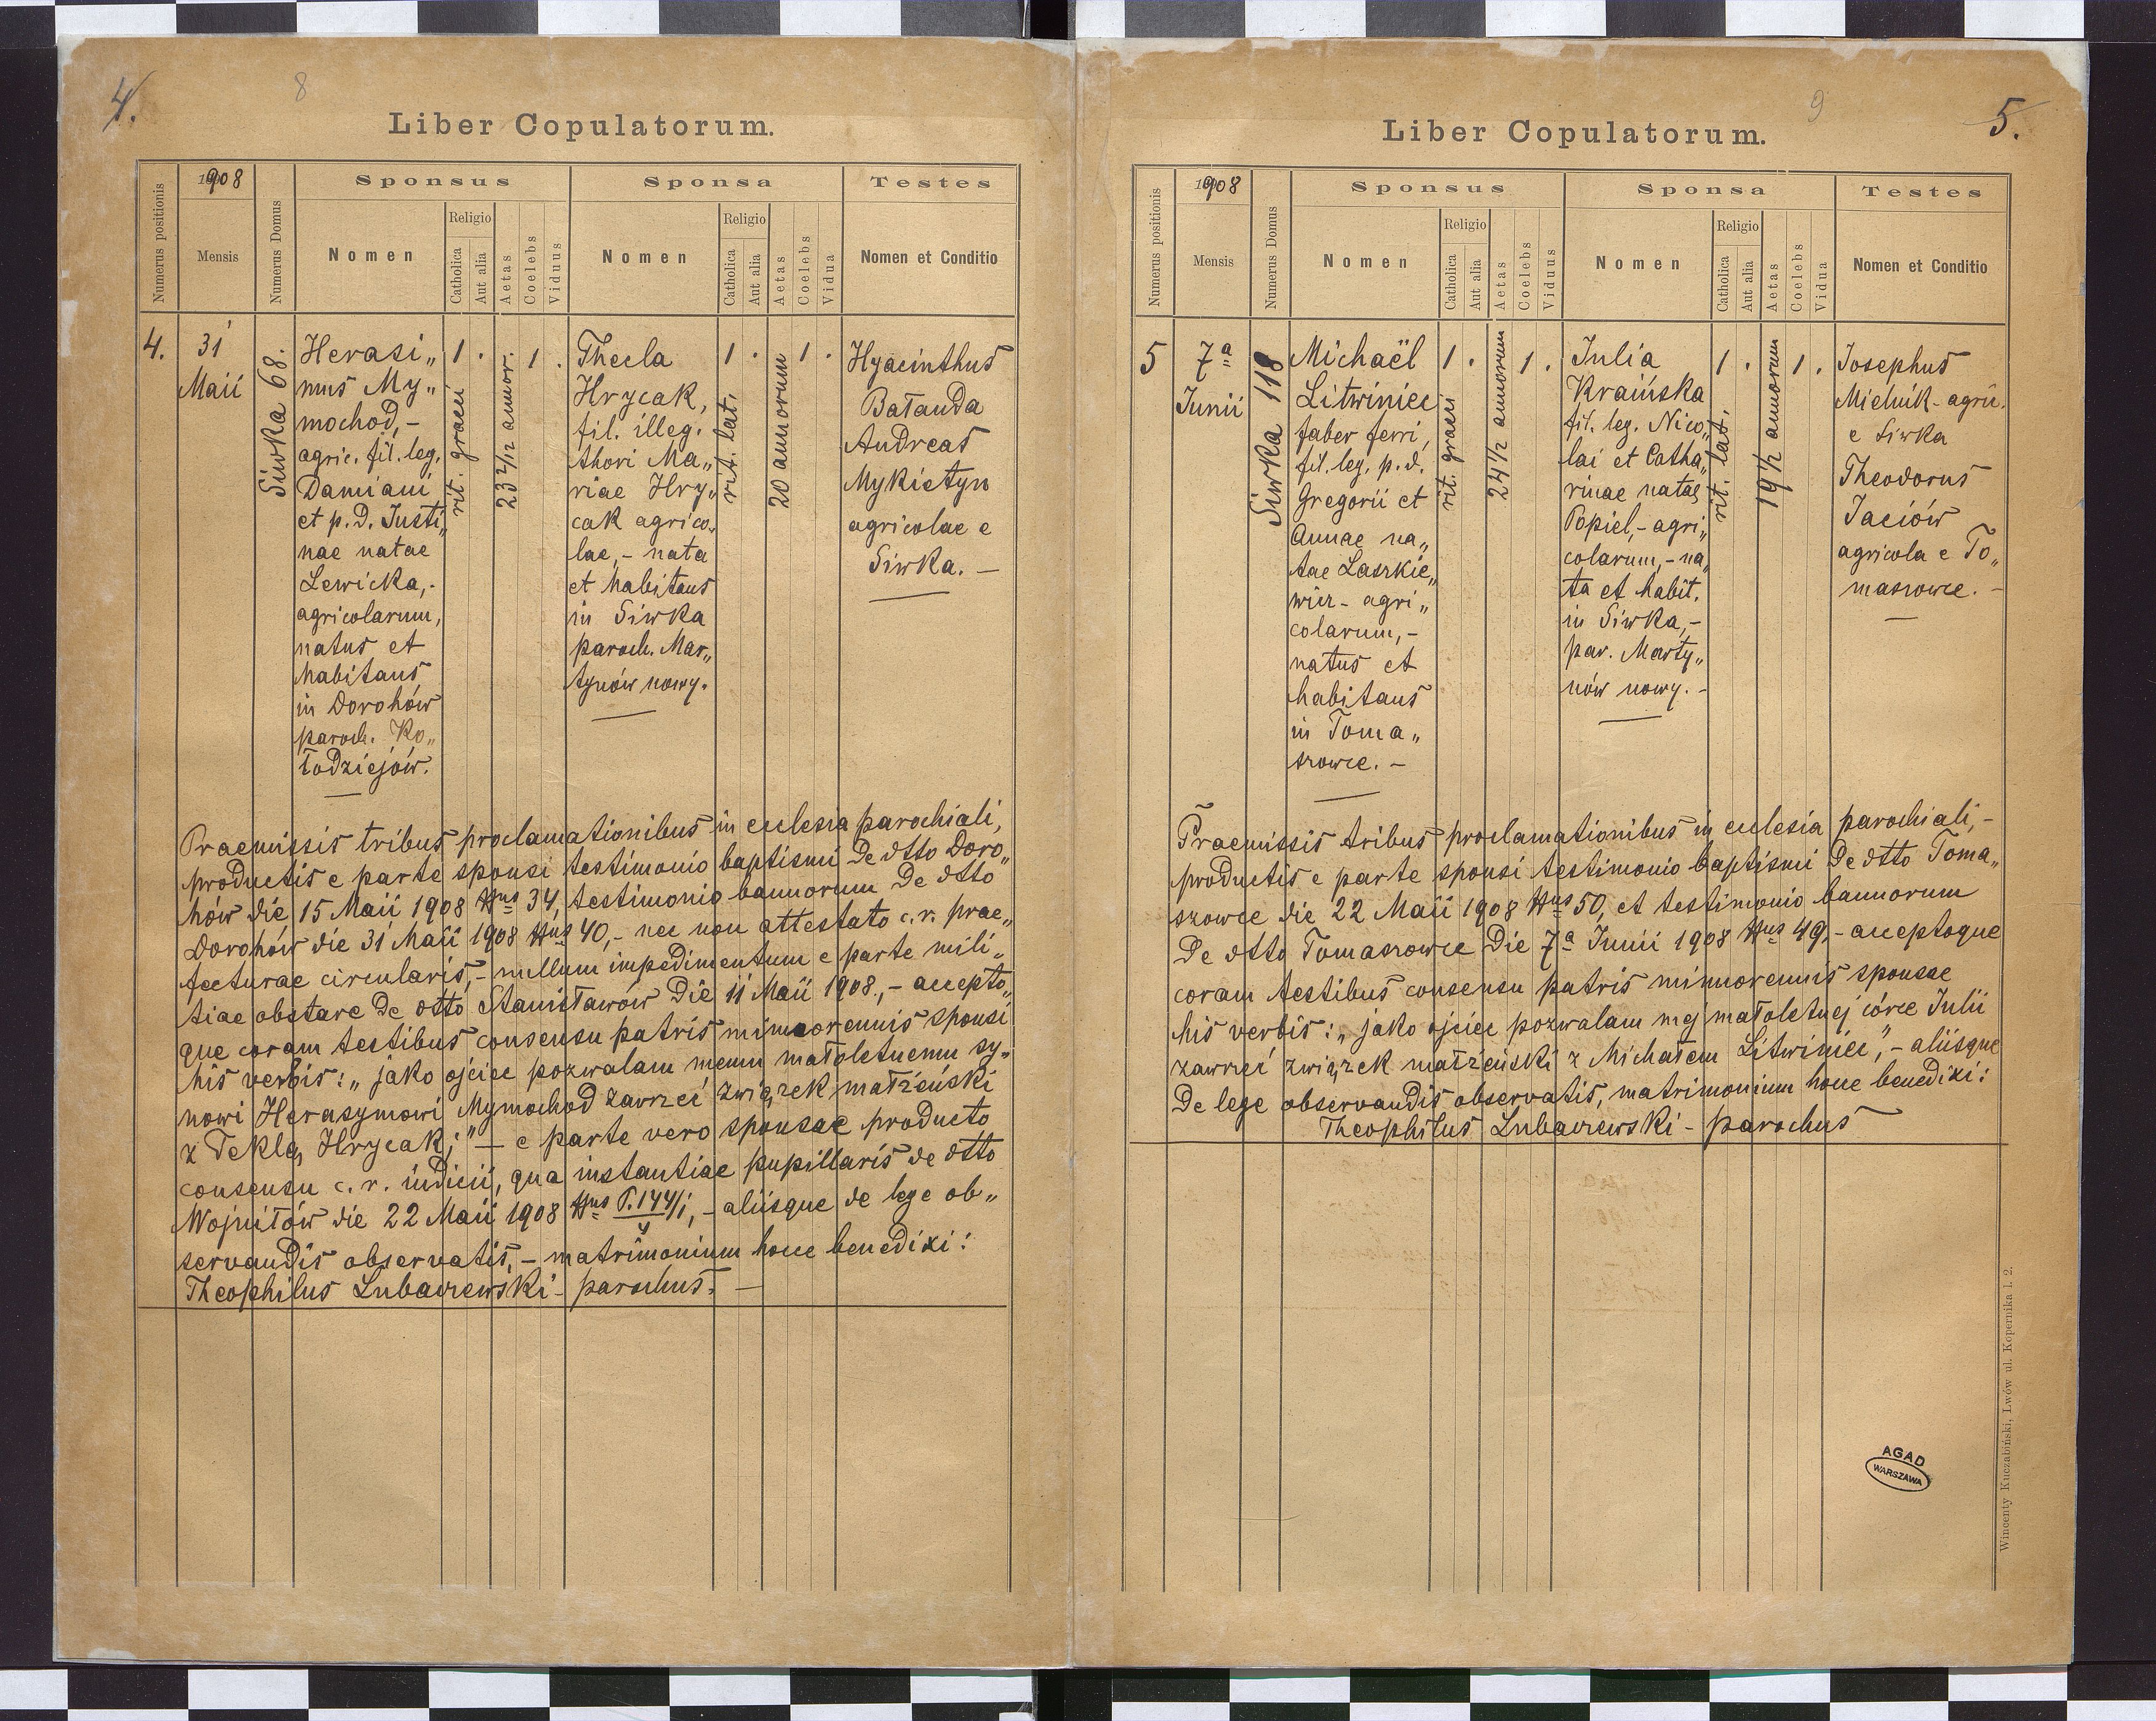 4.
8
Liber Copulatorum.
Numerus positionis
1908
Mensis
Numerus Domus
Sponsus
Nomen
Religio
Catholica
Aut alia
Aetas
Coelebs
Viduus
Sponsa
Nomen
Religio
Catholica
Aut alia
Aetas
Coelebs
Vidua
Testes
Nomen et Conditio
4.
31
Maii
Siwka 68.
Herasi„
mus My„
mochod,-
agric. fil. leg.
Damiani
et p. d. Justi„
nae natae
Lewicka,-
agricolarum,
natus et
habitans
in Dorohów
paroch. Ko„
łodziejów.
1 .
rit. graeci
23 2/12 annor.
1 .
Thecla
Hrycak,
fil. illeg.
thori Ma„
riae Hry„
cak agrico„
lae,- nata
et habitans
in Siwka
paroch. Mar„
tynów nowy.
1 .
rit. lat.
20 annorum
1 .
Hyacinthus
Bałanda
Andreas
Mykietyn
agricolae e
Siwka. —
Praemissis tribus proclamationibus in ecclesia parochiali,
productis e parte sponsi testimonio baptismi de dtto Doro„
hów die 15 Maii 1908 Nus 34, testimonio bannorum de dtto
Dorohów die 31 Maii 1908 Nus 40,- nec non attestato c. r. prae„
fecturae circularis,- nullum impedimentum e parte mili„
tiae obstare de dtto Stanisławów die 11 Maii 1908.,- accepto„
que coram testibus consensu patris minnorennis sponsi
his verbis: „jako ojciec pozwalam memu małoletnemu sy„
nowi Herasymowi Mymochod zawrzeć związek małżeński
z Teklą Hrycak;" — e parte vero sponsae producto
consensu c. r. iudicii, qua instantiae pupillaris de dtto
Wojniłów die 22 Maii 1908 Nus P.144/1,- aliisque de lege ob„
4
servandis observatis,- matrimonium hocce benedixi:
Theophilus Lubaczewski - parochus. —
9
5.
Liber Copulatorum.
Numerus positionis
1908
Mensis
Numerus Domus
Sponsus
Nomen
Religio
Catholica
Aut alia
Aetas
Coelebs
Viduus
Sponsa
Nomen
Religio
Catholica
Aut alia
Aetas
Coelebs
Vidua
Testes
Nomen et Conditio
5
7a
Junii
Siwka 118
Michaël
Litwiniec
faber ferri,
fil. leg. p. d.
Gregorii et
Annae na„
tae Laszkie„
wicz - agri„
colarum,-
natus et
habitans
in Toma„
szowce. -
1 .
rit. graeci
24 1/2 annorum
1 .
Julia
Kraińska
fil. leg. Nico„
lai et Catha„
rinae natae
Popiel,- agri„
colarum,- na„
ta et habit.
in Siwka,-
par. Marty„
nów nowy. -
1 .
rit. lat.
19 1/2 annorum
1 .
Josephus
Mielnik - agric.
e Siwka
Theodorus
Jaciów
agricola e To„
maszowce. -
Praemissis tribus proclamationibus in ecclesia parochiali,-
productis e parte sponsi testimonio baptismi de dtto Toma„
szowce die 22 Maii 1908 Nus 50, et testimonio bannorum
de dtto Tomaszowce die 7a Junii 1908 Nus 49,- acceptoque
coram testibus consensu patris minnorennis sponsae
his verbis: „jako ojciec pozwalam mej małoletnej córce Julii
zawrzeć związek małżeński z Michałem Litwiniec",- aliisque
de lege observandis observatis, matrimonium hocce benedixi:
Theophilus Lubaczewski - parochus
AGAD
WARSZAWA
Wincenty Kuczabiński, Lwów ul. Kopernika l. 2.